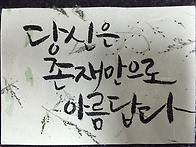 당신은
존재만으로
아름답다